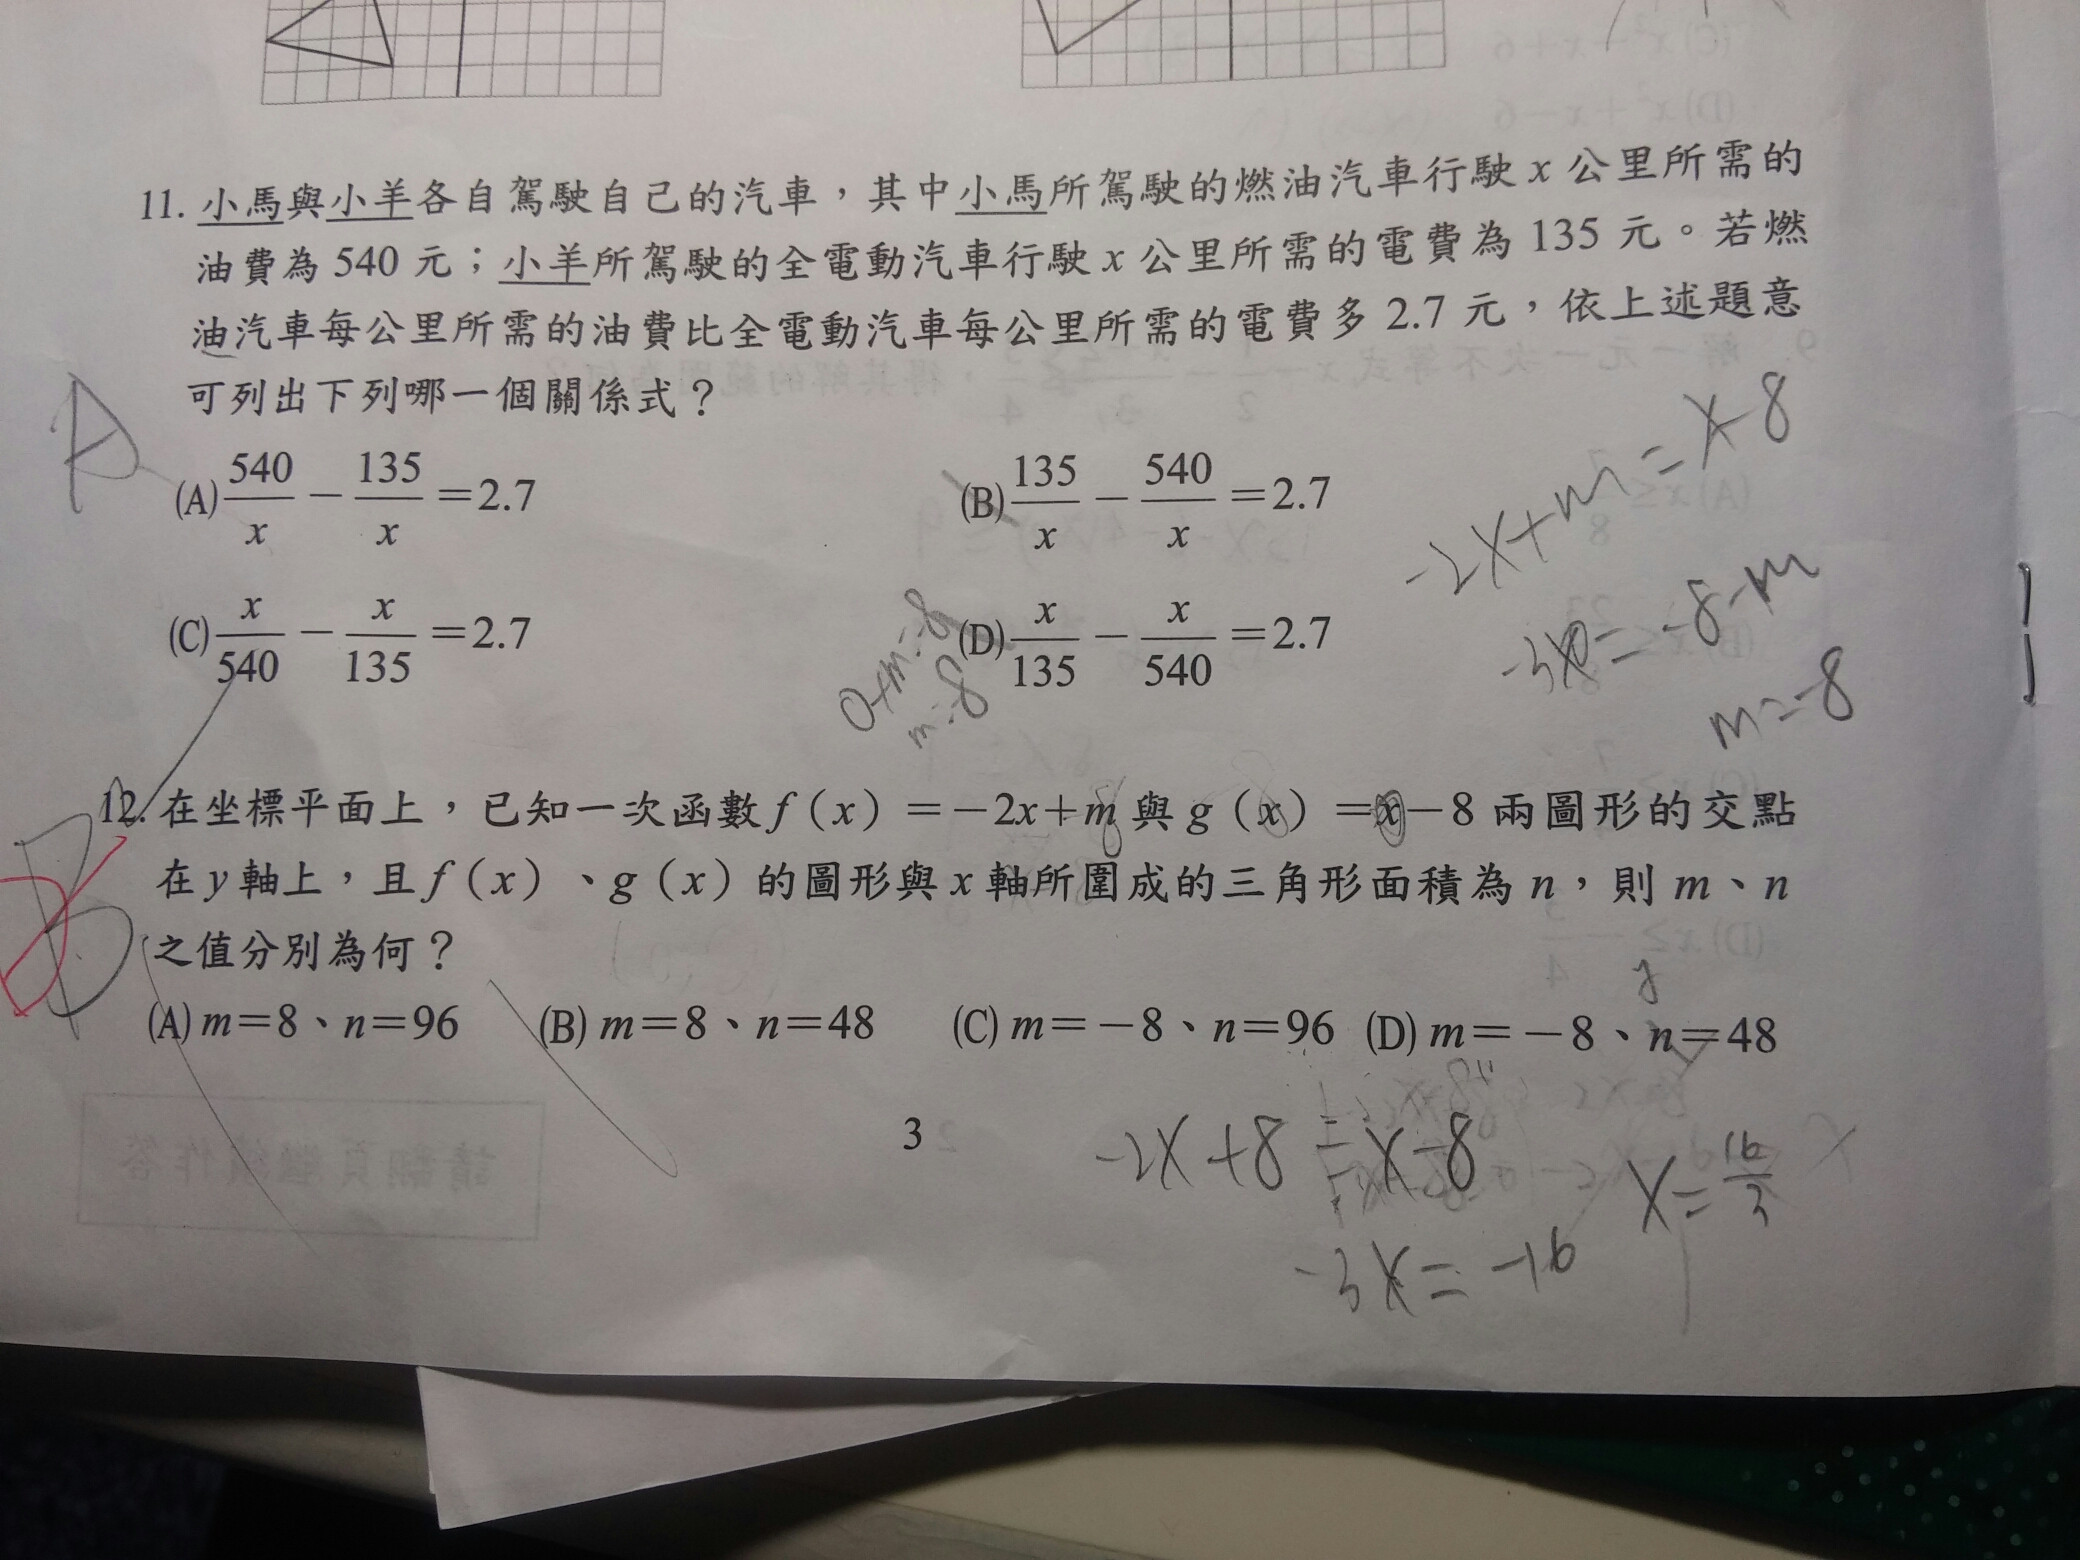 11. 小馬與小羊各自駕駛自己的汽車，其中小馬所駕駛的燃油汽車行駛 x 公里所需的
油費為 540 元；小羊所駕駛的全電動汽車行駛 x 公里所需的電費為 135 元。若燃
油汽車每公里所需的油費比全電動汽車每公里所需的電費多 2.7 元，依上述題意
可列出下列哪一個關係式？
A
(A) 540/x － 135/x ＝2.7 (B) 135/x － 540/x ＝2.7
-2x+m=x-8
(C) x/540 － x/135 ＝2.7 (D) x/135 － x/540 ＝2.7
0+m=-8
m=-8
m=-8
12. 在坐標平面上，已知一次函數 f（x）＝－2x＋m 與 g（x）＝x－8 兩圖形的交點
在 y 軸上，且 f（x）、g（x）的圖形與 x 軸所圍成的三角形面積為 n，則 m、n
之值分別為何？
B
(A) m＝8、n＝96 (B) m＝8、n＝48 (C) m＝－8、n＝96 (D) m＝－8、n＝48
-2x+8=x-8
-3x=-16
x=16/3
3